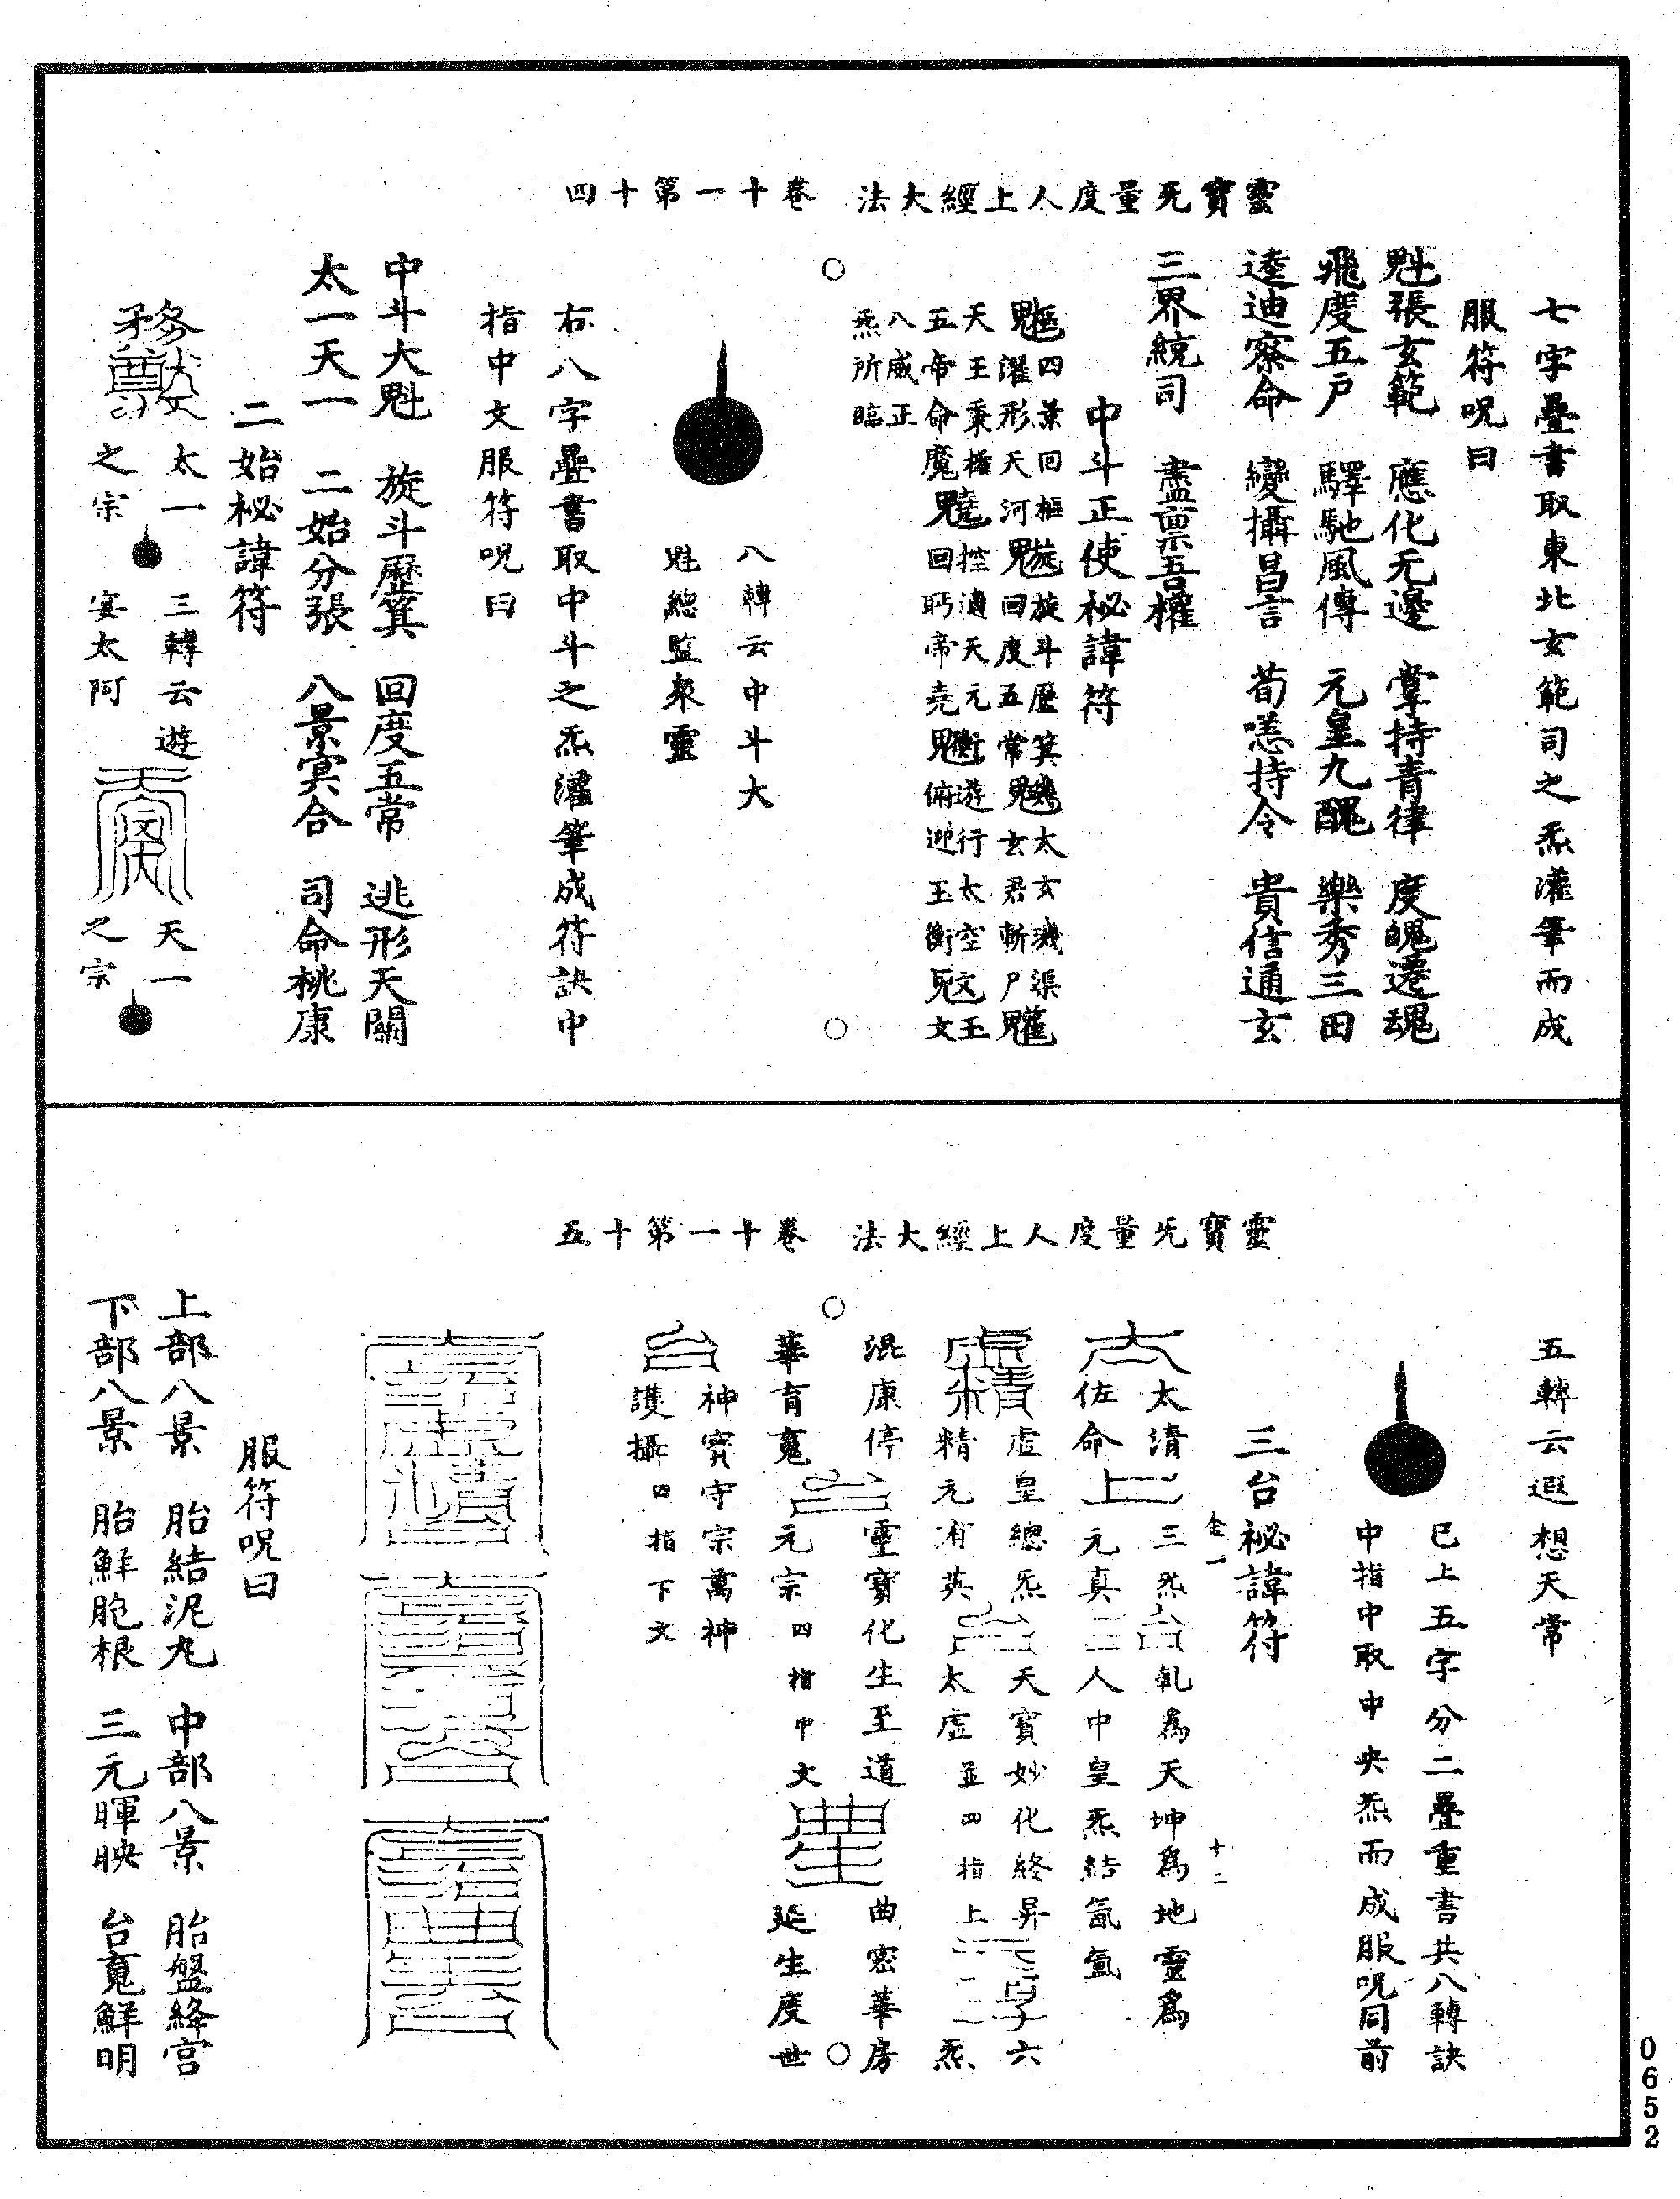 靈寶旡量度人上經大法　卷十一第十四
七字疊書取東北玄範司之炁灌筆而成
服符呪曰
魁張玄範　應化无邊　掌持青律　度魄遷魂
飛度五戶　驛馳風傳　元皇九醜　樂秀三田
逵迪察命　變攝昌言　荀
持令　貴信通玄
三界統司　盡稟吾權
中斗正使祕諱符
四葉回樞
旋斗歷箕
太玄璣渠
濯形天河
回度五常
玄君斬尸
天王秉
控適天元
遊行太空
文王
五帝命魔
回眄帝堯
俯迎玉衡
文
八威正
炁所臨
八轉云中斗大
魁總監眾靈
右八字疊書取中斗之炁濯筆成符訣中
指中文服符呪曰
中斗大魁　旋斗歷箕　回度五常　逃形天關
太一天一　二始分張　八景冥合　司命桃康
二始祕諱符
太一
之宗
三轉云遊
宴太阿
天一
之宗
靈寶旡量度人上經大法　卷十一第十五
五轉云遐想天常
已上五字分二疊重書共八轉訣
中指中取中央炁而成服呪同前
三台祕諱符
太清
三炁
乹為天坤為地靈為
佐命
元真
人中皇炁結氤氳
虛皇總炁
天寶妙化終昇
六
精元有英
太虛並四指上
炁
混康停
靈寶化生至道
曲密華房
華育寬
元宗四指中文
延生度世
神寶守宗萬神
護攝四指下文
服符呪曰
上部八景　胎結泥丸　中部八景　胎盤絳宮
下部八景　胎鮮胞根　三元暉映　台寬鮮明
0652